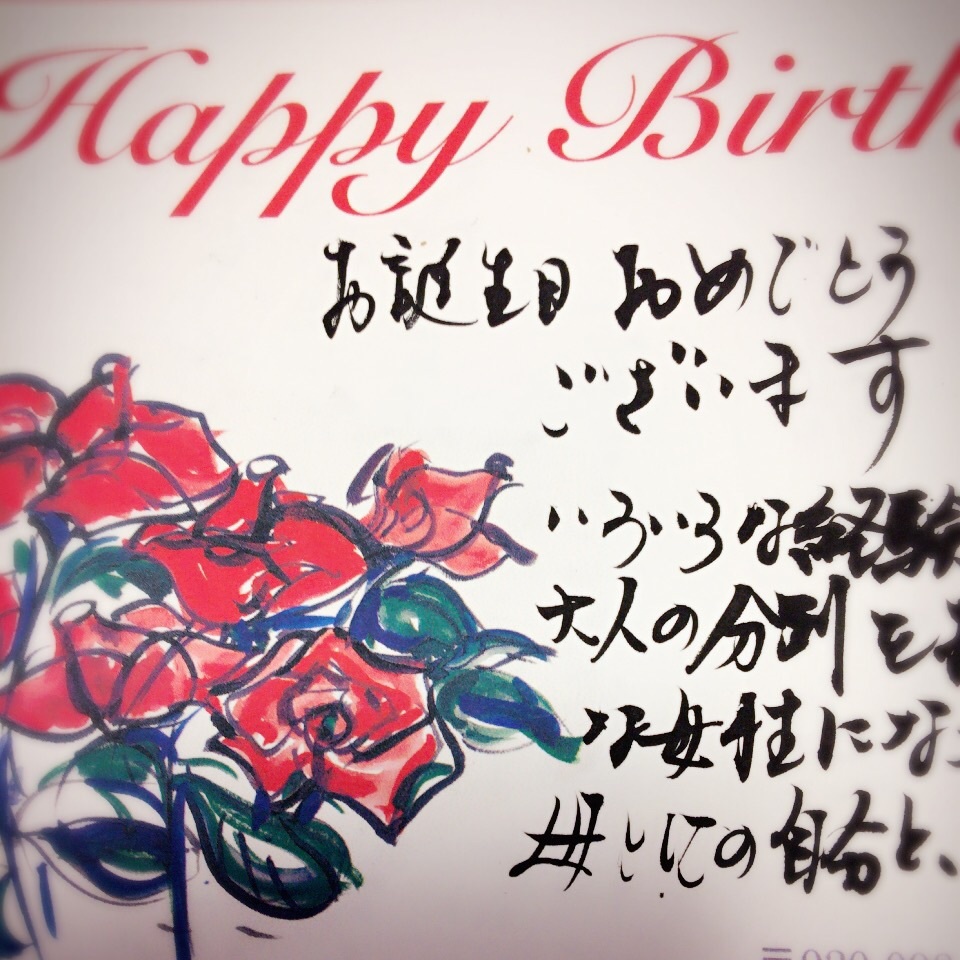 Happy Birth
お誕生日 おめでとう
ございます
いろいろな経験
大人の分別を
な女性にな
母としての自分と、